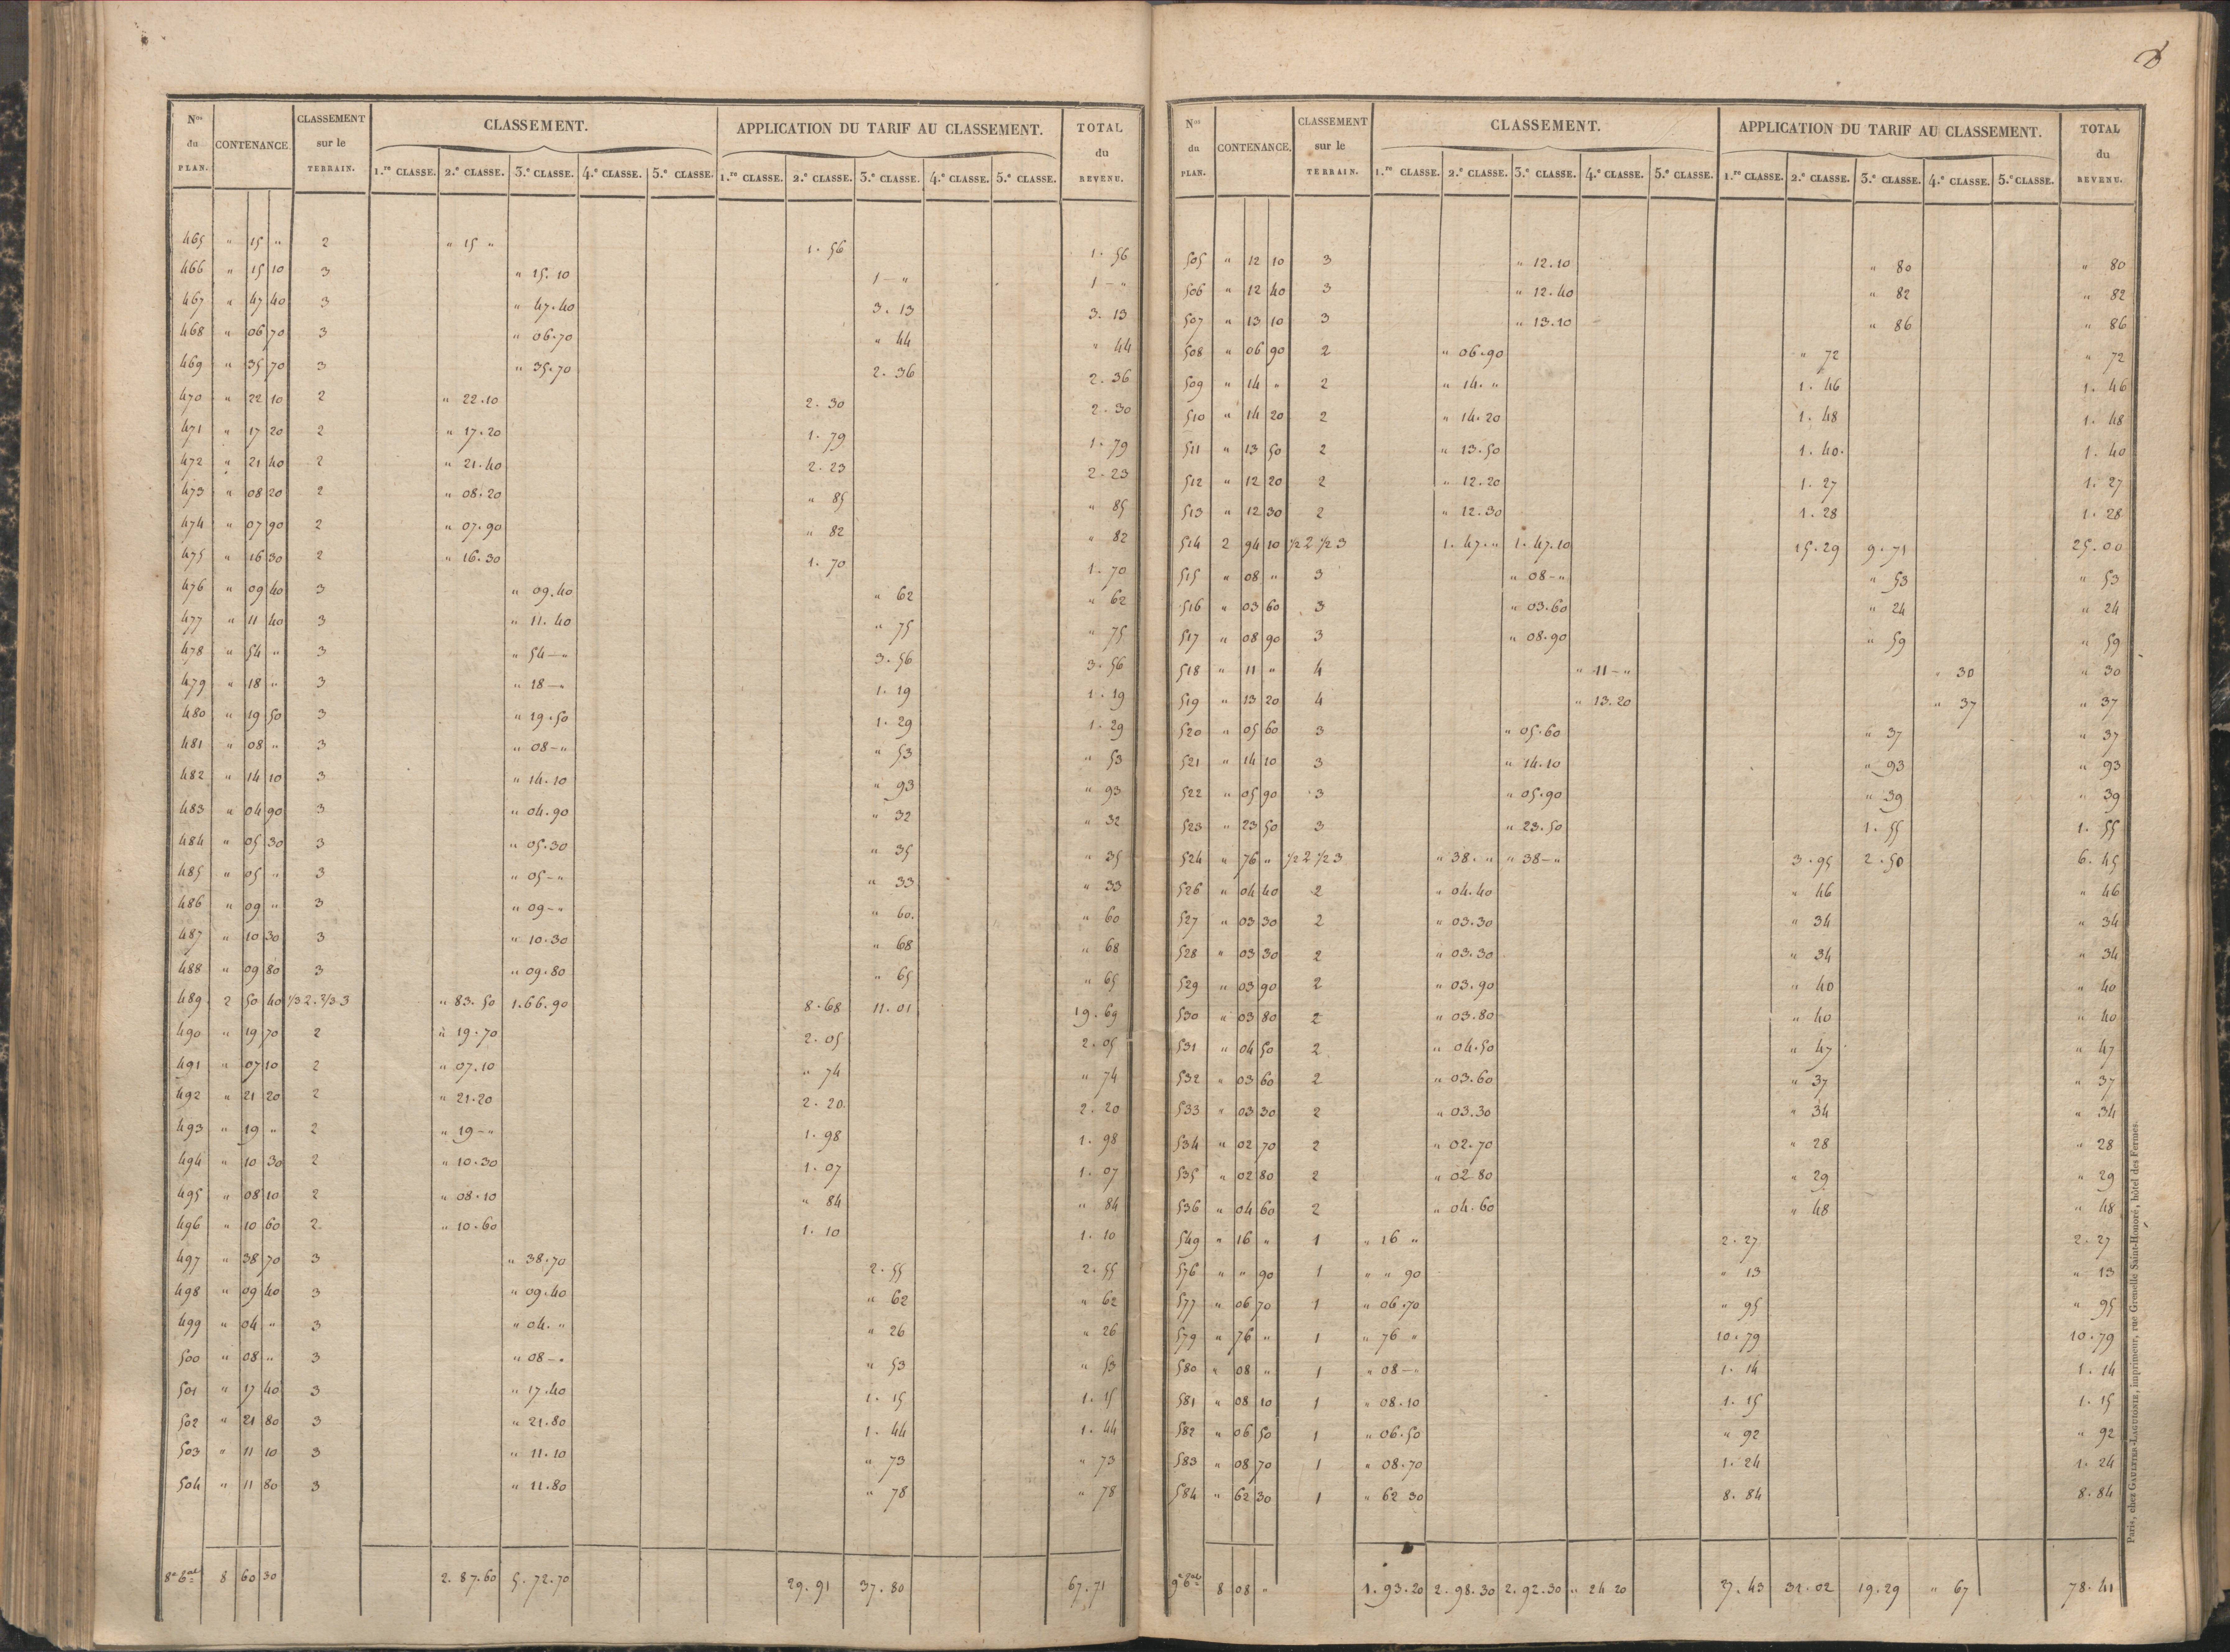 N.os du PLAN. CONTENANCE. CLASSEMENT sur le TERRAIN. CLASSEMENT. APPLICATION DU TARIF AU CLASSEMENT. TOTAL du REVENU.
1.re CLASSE. 2.e CLASSE. 3.e CLASSE. 4.e CLASSE. 5.e CLASSE. 1.re CLASSE. 2.e CLASSE. 3.e CLASSE. 4.e CLASSE. 5.e CLASSE.
465 " 15 " 2 " 15 " 1. 56 1. 56
466 " 15 10 3 " 15. 10 1 - " 1 - "
467 " 47 40 3 " 47.40 3. 13 3. 13
468 " 06 70 3 " 06.70 " 44 " 44
469 " 35 70 3 " 35.70 2. 36 2. 36
470 " 22 10 2 " 22.10 2. 30 2. 30
471 " 17 20 2 " 17.20 1. 79 1. 79
472 " 21 40 2 " 21.40 2. 23 2. 23
473 " 08 20 2 " 08.20 " 85 " 85
474 " 07 90 2 " 07.90 " 82 " 82
475 " 16 30 2 " 16.30 1. 70 1. 70
476 " 09 40 3 " 09.40 " 62 " 62
477 " 11 40 3 " 11.40 " 75 " 75
478 " 54 " 3 " 54 - " 3. 56 3. 56
479 " 18 " 3 " 18 - " 1. 19 1. 19
480 " 19 50 3 " 19.50 1. 29 1. 29
481 " 08 " 3 " 08 - " " 53 " 53
482 " 14 10 3 " 14.10 " 93 " 93
483 " 04 90 3 " 04.90 " 32 " 32
484 " 05 30 3 " 05.30 " 35 " 35
485 " 05 " 3 " 05 - " " 33 " 33
486 " 09 " 3 " 09 - " " 60. " 60
487 " 10 30 3 " 10.30 " 68 " 68
488 " 09 80 3 " 09.80 " 65 " 65
489 2 50 40 1/3 2. 2/3 3 " 83. 50 1.66.90 8. 68 11. 01 19. 69
490 " 19 70 2 " 19.70 2. 05 2. 05
491 " 07 10 2 " 07.10 " 74 " 74
492 " 21 20 2 " 21.20 2. 20 2. 20
493 " 19 " 2 " 19 - " 1. 98 1. 98
494 " 10 30 2 " 10.30 1. 07 1. 07
495 " 08 10 2 " 08.10 " 84 " 84
496 " 10 60 2 " 10.60 1. 10 1. 10
497 " 38 70 3 " 38.70 2. 55 2. 55
498 " 09 40 3 " 09.40 " 62 " 62
499 " 04 " 3 " 04. " " 26 " 26
500 " 08 " 3 " 08 - " " 53 " 53
501 " 17 40 3 " 17.40 1. 15 1. 15
502 " 21 80 3 " 21.80 1. 44 1. 44
503 " 11 10 3 " 11.10 " 73 " 73
504 " 11 80 3 " 11.80 " 78 " 78
8 60 30 2. 87.60 5. 72.70 29. 91 37. 80 67. 71
N.os du PLAN. CONTENANCE. CLASSEMENT sur le TERRAIN. CLASSEMENT. APPLICATION DU TARIF AU CLASSEMENT. TOTAL du REVENU.
1.re CLASSE. 2.e CLASSE. 3.e CLASSE. 4.e CLASSE. 5.e CLASSE. 1.re CLASSE. 2.e CLASSE. 3.e CLASSE. 4.e CLASSE. 5.e CLASSE.
505 " 12 10 3 " 12.10 " 80 " 80
506 " 12 40 3 " 12.40 " 82 " 82
507 " 13 10 3 " 13.10 " 86 " 86
508 " 06 90 2 " 06.90 " 72 " 72
509 " 14 " 2 " 14. " 1. 46 1. 46
510 " 14 20 2 " 14.20 1. 48 1. 48
511 " 13 50 2 " 13.50 1. 40. 1. 40
512 " 12 20 2 " 12.20 1. 27 1. 27
513 " 12 30 2 " 12.30 1. 28 1. 28
514 2 94 10 1/2 2 1/2 3 1. 47. " 1. 47.10 15. 29 9. 71 25. 00
515 " 08 " 3 " 08 - " " 53 " 53
516 " 03 60 3 " 03.60 " 24 " 24
517 " 08 90 3 " 08.90 " 59 " 59
518 " 11 " 4 " 11 - " " 30 " 30
519 " 13 20 4 " 13.20 " 37 " 37
520 " 05 60 3 " 05.60 " 37 " 37
521 " 14 10 3 " 14.10 " 93 " 93
522 " 05 90 3 " 05.90 " 39 " 39
523 " 23 50 3 " 23.50 1. 55 1. 55
524 " 76 " 1/2 2 1/2 3 " 38. " " 38 - " 3. 95 2. 50 6. 45
526 " 04 40 2 " 04.40 " 46 " 46
527 " 03 30 2 " 03.30 " 34 " 34
528 " 03 30 2 " 03.30 " 34 " 34
529 " 03 90 2 " 03.90 " 40 " 40
530 " 03 80 2 " 03.80 " 40 " 40
531 " 04 50 2 " 04.50 " 47 " 47
532 " 03 60 2 " 03.60 " 37 " 37
533 " 03 30 2 " 03.30 " 34 " 34
534 " 02 70 2 " 02.70 " 28 " 28
535 " 02 80 2 " 02 80 " 29 " 29
536 " 04 60 2 " 04.60 " 48 " 48
549 " 16 " 1 " 16 " 2. 27 2. 27
576 " " 90 1 " " 90 " 13 " 13
577 " 06 70 1 " 06.70 " 95 " 95
579 " 76 " 1 " 76 " 10. 79 10. 79
580 " 08 " 1 " 08 - " 1. 14 1. 14
581 " 08 10 1 " 08.10 1. 15 1. 15
582 " 06 50 1 " 06.50 " 92 " 92
583 " 08 70 1 " 08.70 1. 24 1. 24
584 " 62 30 1 " 62 30 8. 84 8. 84
8 08 " 1. 93.20 2. 98.30 2. 92.30 " 24 20 27. 43 31. 02 19. 29 " 67 78. 41
Paris, chez GAULTIER-LAGUIONIE, imprimeur, rue Grenelle Saint-Honoré, hôtel des Fermes.